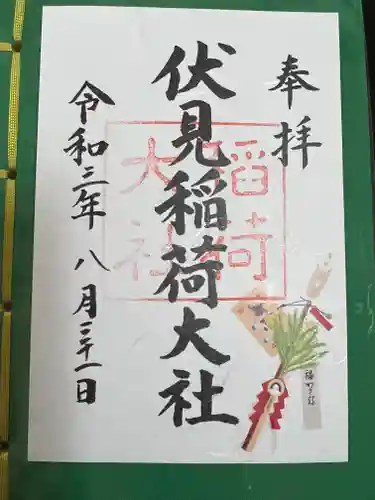 奉拝
伏見稲荷大社
稲荷
大社
令和三年八月三十一日